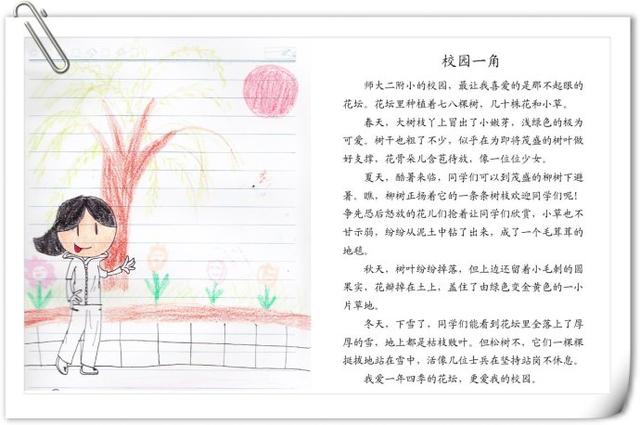 校园一角
师大二附小的校园，最让我喜爱的是那不起眼的
花坛。花坛里种植着七八棵树，几十株花和小草。
春天，大树枝丫上冒出了小嫩芽，浅绿色的极为
可爱。树干也粗了不少，似乎在为即将茂盛的树叶做
好支撑，花骨朵儿含苞待放，像一位位少女。
夏天，酷暑来临，同学们可以到茂盛的柳树下避
暑。瞧，柳树正扬着它的一条条树枝欢迎同学们呢！
争先恐后怒放的花儿们抢着让同学们欣赏，小草也不
甘示弱，纷纷从泥土中钻了出来，成了一个毛茸茸的
地毯。
秋天，树叶纷纷掉落，但上边还留着小毛刺的圆
果实，花瓣掉在土上，盖住了由绿色变金黄色的一小
片草地。
冬天，下雪了，同学们能看到花坛里全落上了厚
厚的雪，地上都是枯枝败叶。但松树不，它们一棵棵
挺拔地站在雪中，活像几位士兵在坚持站岗不休息。
我爱一年四季的花坛，更爱我的校园。